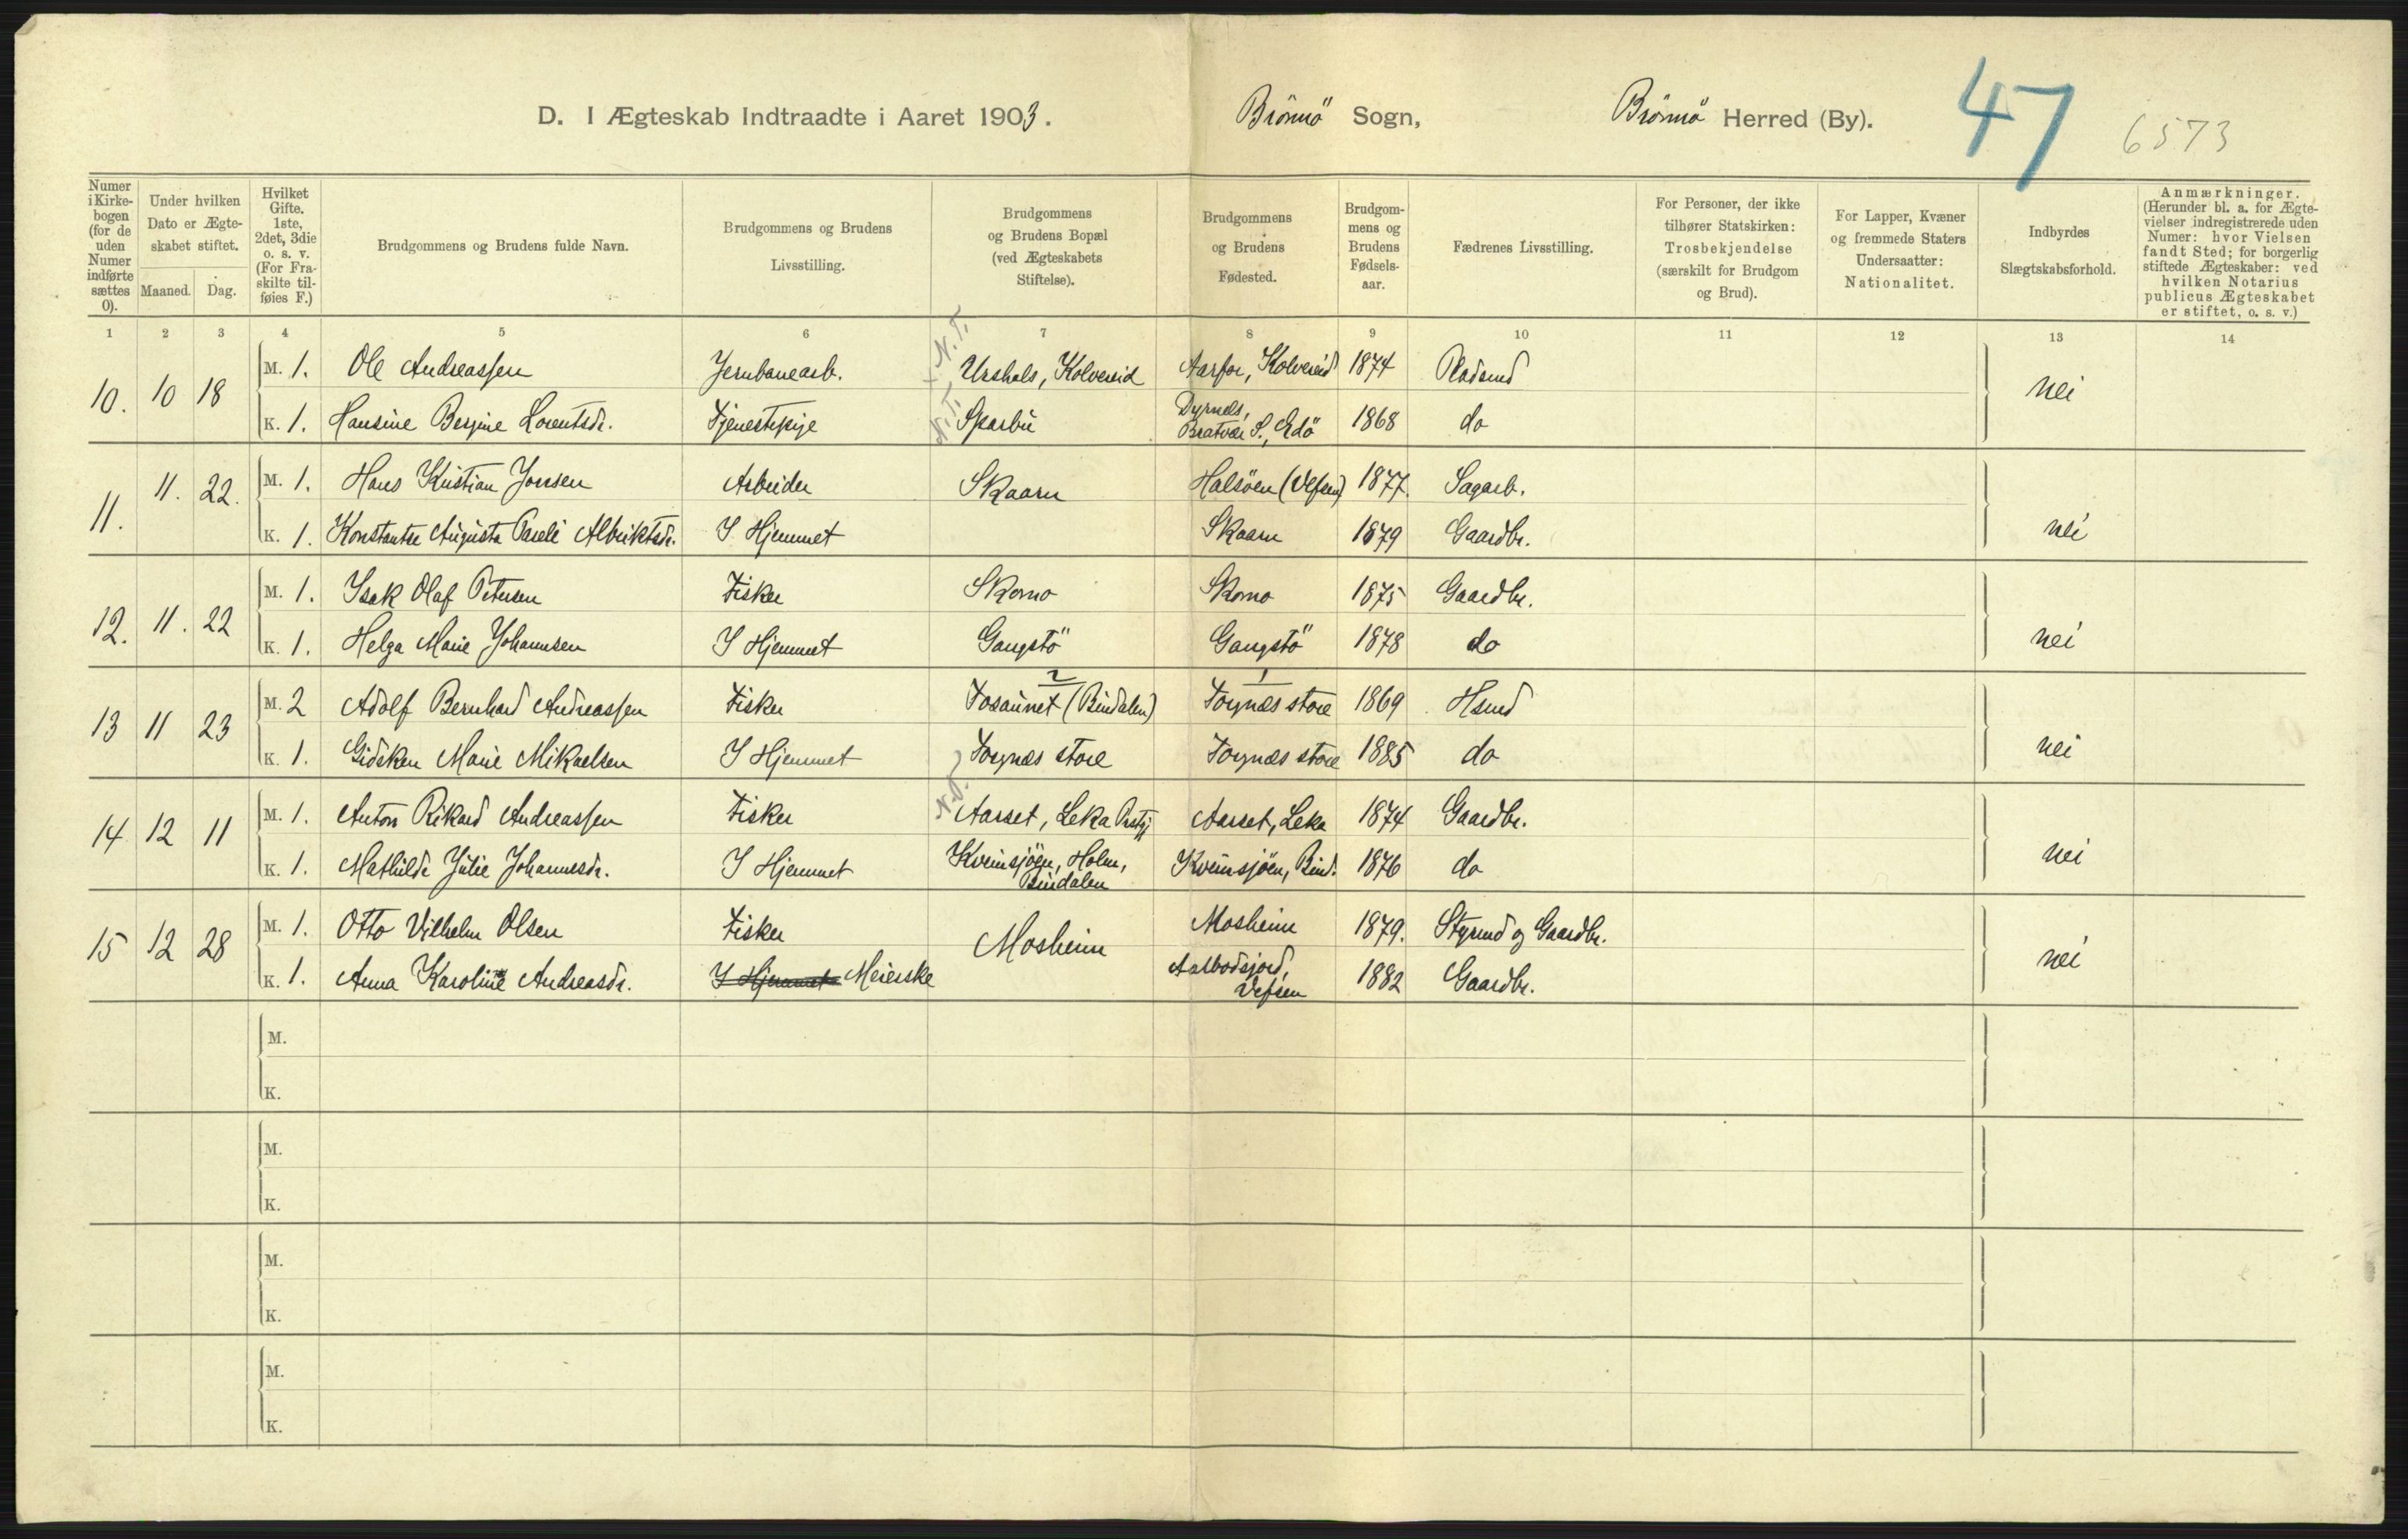 D. I Ægteskab Indtraadte i Aaret 1903. Brönnö Sogn, Brönnö Herred (By). 47 6573
Numer i Kirkebogen (for de uden Numer indførte sættes 0). Under hvilken Dato er Ægteskabet stiftet. Maaned. Dag. Hvilket Gifte. 1ste, 2det, 3die o. s. v. (For Fraskilte tilføies F.) Brudgommens og Brudens fulde Navn. Brudgommens og Brudens Livsstilling. Brudgommens og Brudens Bopæl (ved Ægteskabets Stiftelse). Brudgommens og Brudens Fødested. Brudgommens og Brudens Fødselsaar. Fædrenes Livsstilling. For Personer, der ikke tilhører Statskirken: Trosbekjendelse (særskilt for Brudgom og Brud). For Lapper, Kvæner og fremmede Staters Undersaatter: Nationalitet. Indbyrdes Slægtskabsforhold. Anmærkninger. (Herunder bl. a. for Ægtevielser indregistrerede uden Numer: hvor Vielsen fandt Sted; for borgerlig stiftede Ægteskaber: ved hvilken Notarius publicus Ægteskabet er stiftet, o. s. v.)
1 2 3 4 5 6 7 8 9 10 11 12 13 14
10. 10 18 M. 1. Ole Andreassen Jernbanearb. N.T. Urshals, Kolvereid Aarfor, Kolvereid 1874 Pladsmd nei
K. 1. Hansine Bergine Lorentsdr. Tjenestepige N.T. Sparbu Dyrnes, Bratvær S., Edö 1868 do
11. 11. 22. M. 1. Hans Kristian Jonsen Arbeider Skaarn Halsöen (Vefsen) 1877. Sagarb. nei
K. 1. Konstantse Augusta Pareli Albriktsdr. I Hjemmet Skaarn 1879 Gaardbr.
12. 11. 22 M. 1. Isak Olaf Petersen Fisker Skomo Skomo 1875 Gaardbr. nei
K. 1. Helga Marie Johannsen I Hjemmet Gangstö Gangstö 1878 do
13 11 23 M. 2 Adolf Bernhard Andreassen Fisker 2 Tosaunet (Bindalen) 1 Torgnæs store 1869 Hsmd nei
K. 1. Gidsken Marie Mikaelsen I Hjemmet Torgnæs store Torgnæs store 1885 do
14 12 11 M. 1. Anton Rikard Andreassen Fisker N.T. Aarset, Leka Prstgj Aarset, Leka 1874 Gaardbr. nei
K. 1. Mathilde Julie Johannesdr. I Hjemmet Kveinsjöen, Holm, Bindalen Kveinsjöen, Bind. 1876 do
15 12 28 M. 1. Otto Vilhelm Olsen Fisker Mosheim Mosheim 1879. Styrmd og Gaardbr. nei
K. 1. Anna Karoline Andreasdr. I Hjemmet Meierske Aalbodsjord, Vefsen 1882 Gaardbr.
M.
K.
M.
K.
M.
K.
M.
K.